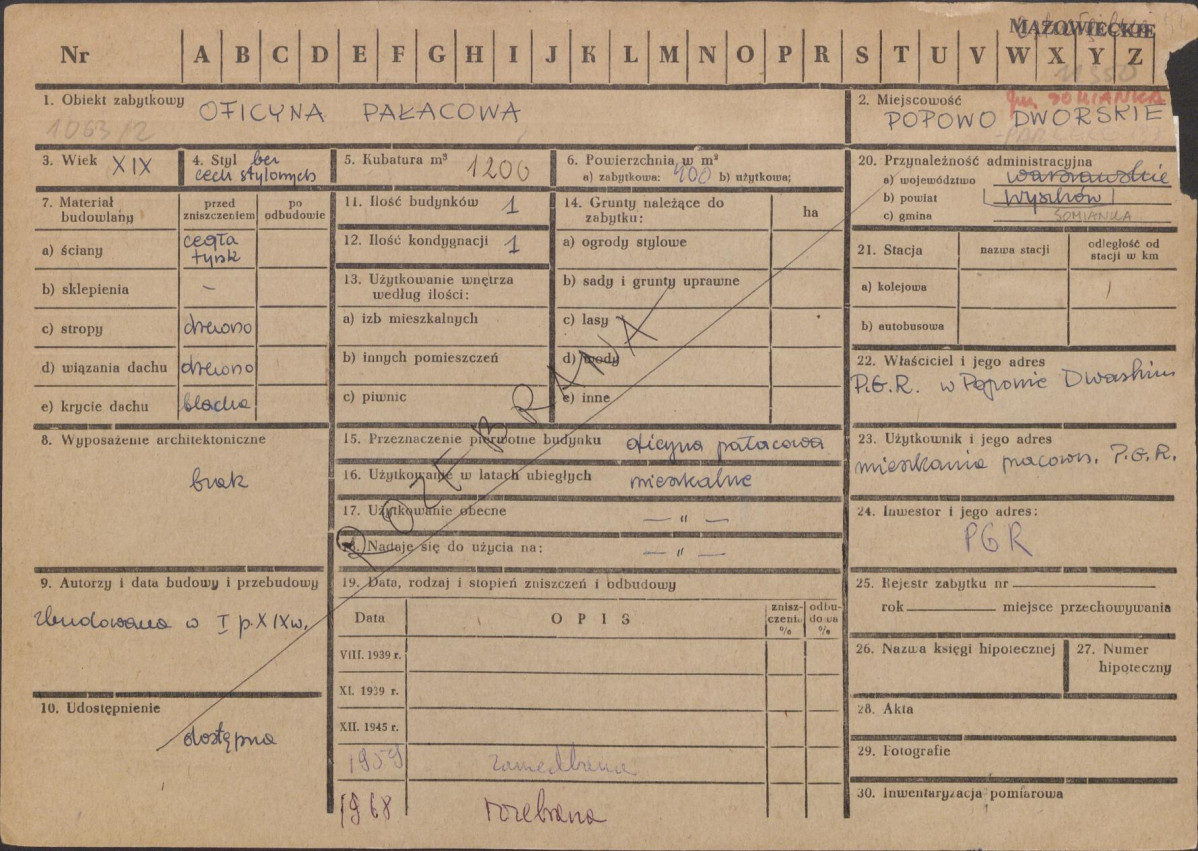 MAZOWIECKIE
Nr A B C D E F G H I J K L M N O P R S T U V W X Y Z
11550
1. Obiekt zabytkowy OFICYNA PAŁACOWA
1063/2
2. Miejscowość gm. SOMIANKA
POPOWO DWORSKIE
3. Wiek XIX
4. Styl bez
cech stylowych
5. Kubatura m³ 1200
6. Powierzchnia w m²
a) zabytkowa: 400 b) użytkowa;
7. Materiał budowlany
przed zniszczeniem
po odbudowie
a) ściany cegła
tynk
b) sklepienia –
c) stropy drewno
d) wiązania dachu drewno
e) krycie dachu blacha
8. Wyposażenie architektoniczne
brak
9. Autorzy i data budowy i przebudowy
zbudowana w I p. XIX w.
10. Udostępnienie
dostępna
11. Ilość budynków 1
12. Ilość kondygnacji 1
13. Użytkowanie wnętrza
według ilości:
a) izb mieszkalnych
b) innych pomieszczeń
c) piwnic
14. Grunty należące do
zabytku:
ha
a) ogrody stylowe
b) sady i grunty uprawne
c) lasy
d) wody
e) inne
ROZEBRANA
15. Przeznaczenie pierwotne budynku oficyna pałacowa
16. Użytkowanie w latach ubiegłych mieszkalne
17. Użytkowanie obecne — „ —
18. Nadaje się do użycia na: — „ —
19. Data, rodzaj i stopień zniszczeń i odbudowy
Data
OPIS
zniszczenia %
odbudowa %
VIII. 1939 r.
XI. 1939 r.
XII. 1945 r.
1959 zaniedbana
1968 rozebrana
20. Przynależność administracyjna
a) województwo warszawskie
b) powiat Wyszków
c) gmina SOMIANKA
21. Stacja
nazwa stacji
odległość od
stacji w km
a) kolejowa
b) autobusowa
22. Właściciel i jego adres
P.G.R. w Popowie Dworskim
23. Użytkownik i jego adres
mieszkania pracown. P.G.R.
24. Inwestor i jego adres:
PGR
25. Rejestr zabytku nr
rok miejsce przechowywania
26. Nazwa księgi hipotecznej
27. Numer
hipoteczny
28. Akta
29. Fotografie
30. Inwentaryzacja pomiarowa